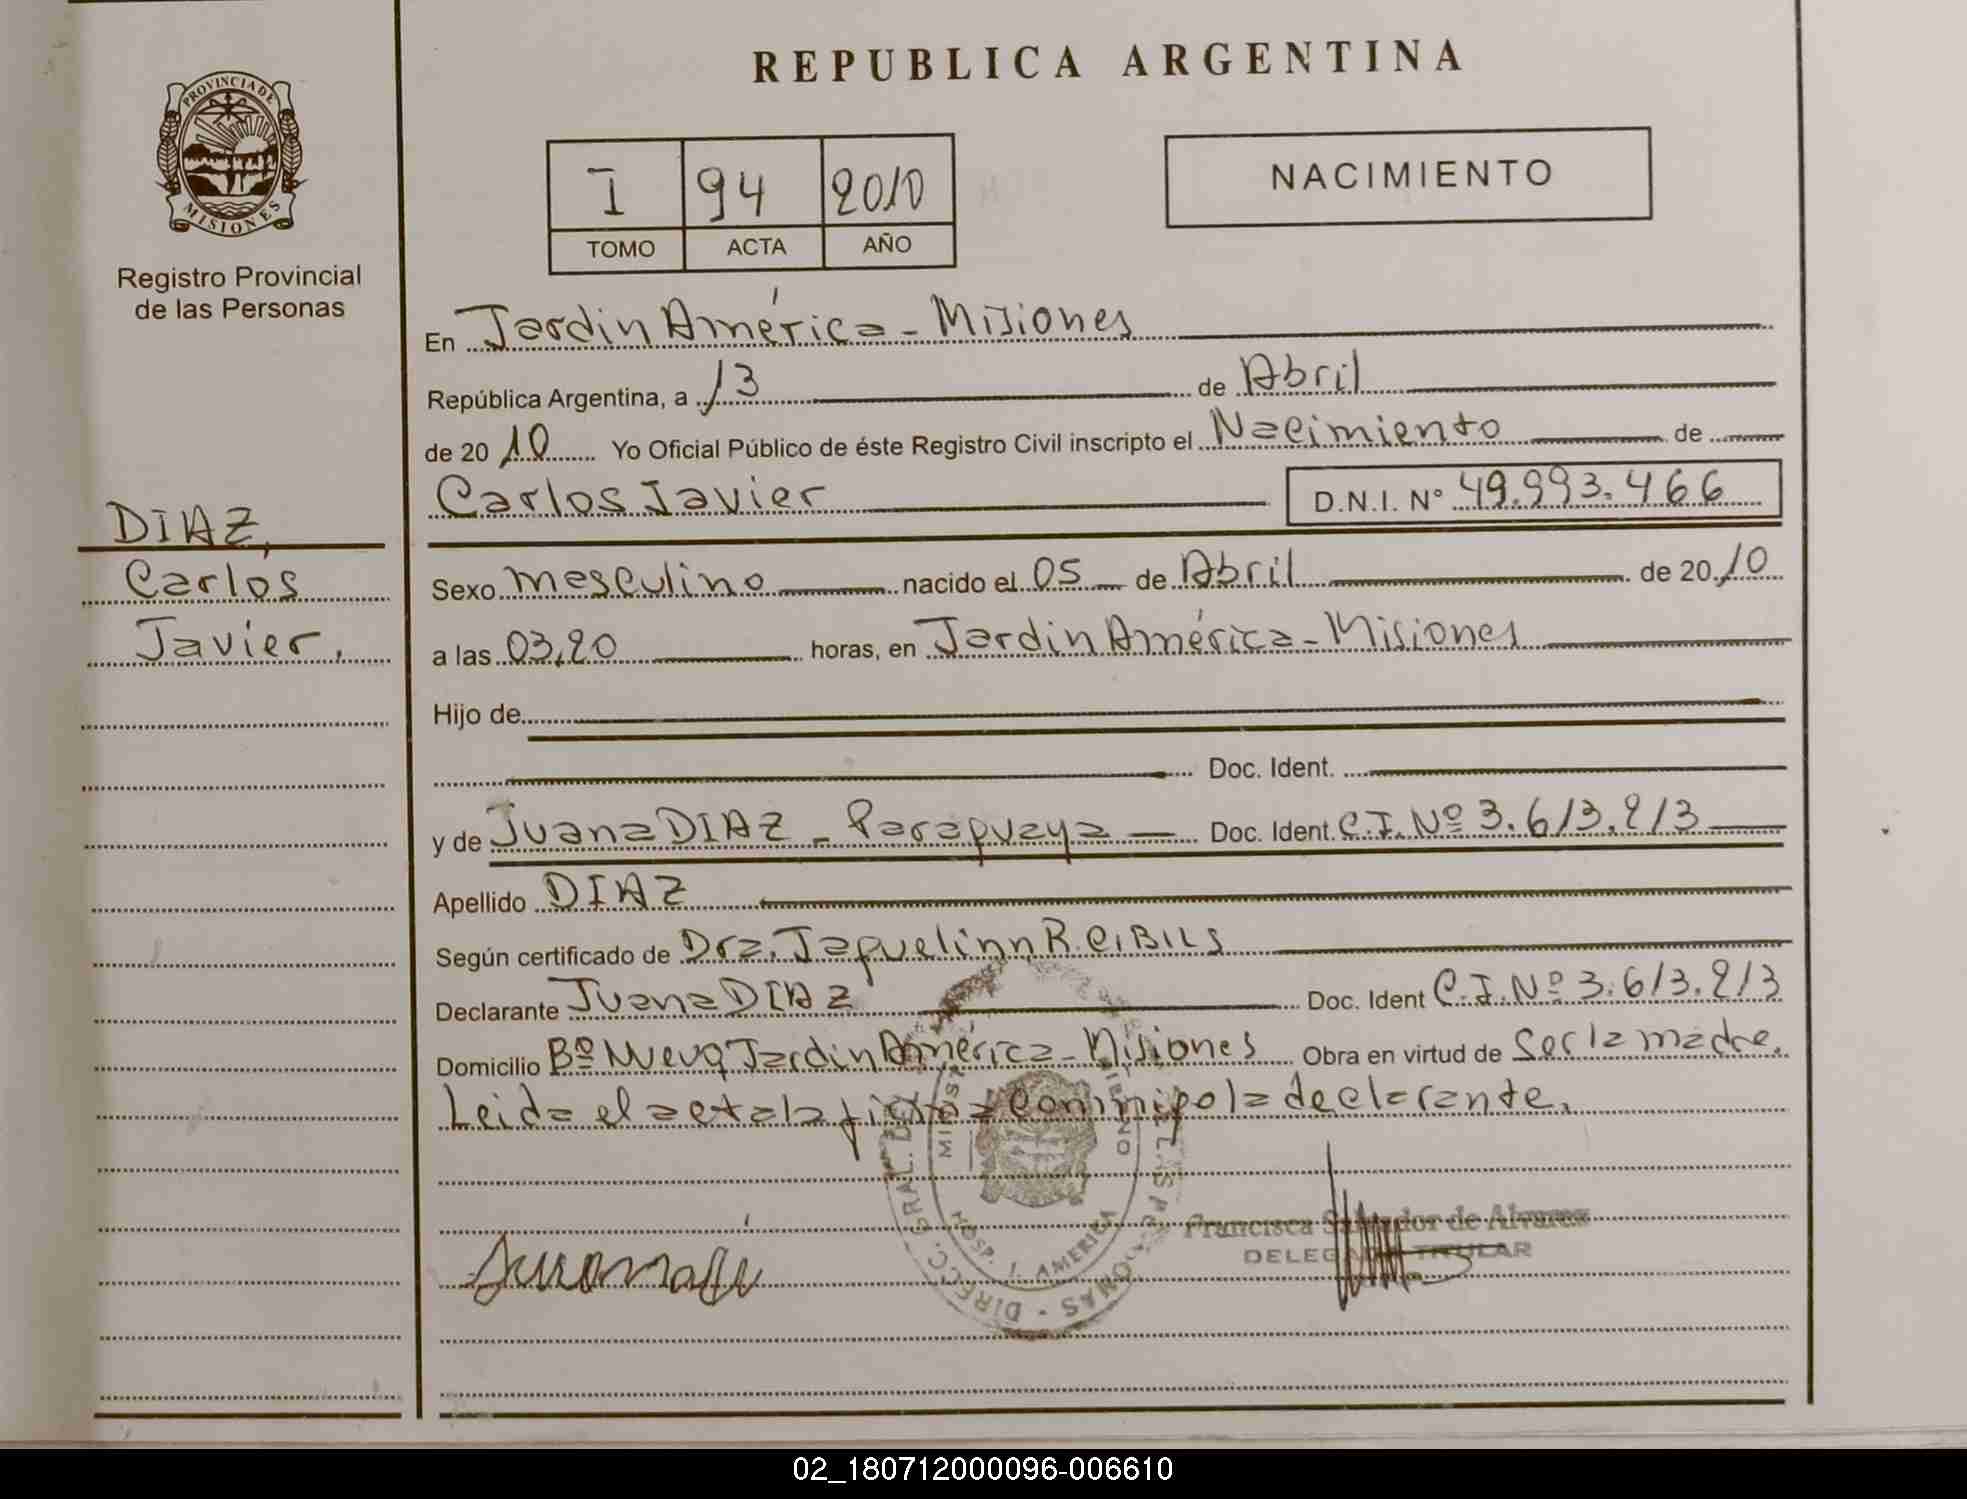 PROVINCIA DE
MISIONES
Registro Provincial
de las Personas
DIAZ,
Carlos
Javier.
REPUBLICA ARGENTINA
I 94 2010
TOMO ACTA AÑO
NACIMIENTO
En Jardin América - Misiones
República Argentina, a 13 de Abril
de 2010 Yo Oficial Público de éste Registro Civil inscripto el Nacimiento de
Carlos Javier D.N.I. N° 49.993.466
Sexo masculino nacido el 05 de Abril de 2010
a las 03,20 horas, en Jardin América - Misiones
Hijo de
Doc. Ident.
y de Juana DIAZ - Paraguaya Doc. Ident. C.I. Nº 3.613.213
Apellido DIAZ
Según certificado de Dra. Jaquelinn R.
Declarante Juana DIAZ Doc. Ident C.I. Nº 3.613.213
Domicilio Bº Nuevo Jardin América - Misiones Obra en virtud de Ser la madre.
Leida el acta la firma conmigo la declarante.
DIRECC. GRAL. DE PERSONAS
HOSP. J. AMERICA
Francisca Salvador de Alvarez
DELEGADA TITULAR
02_180712000096-006610